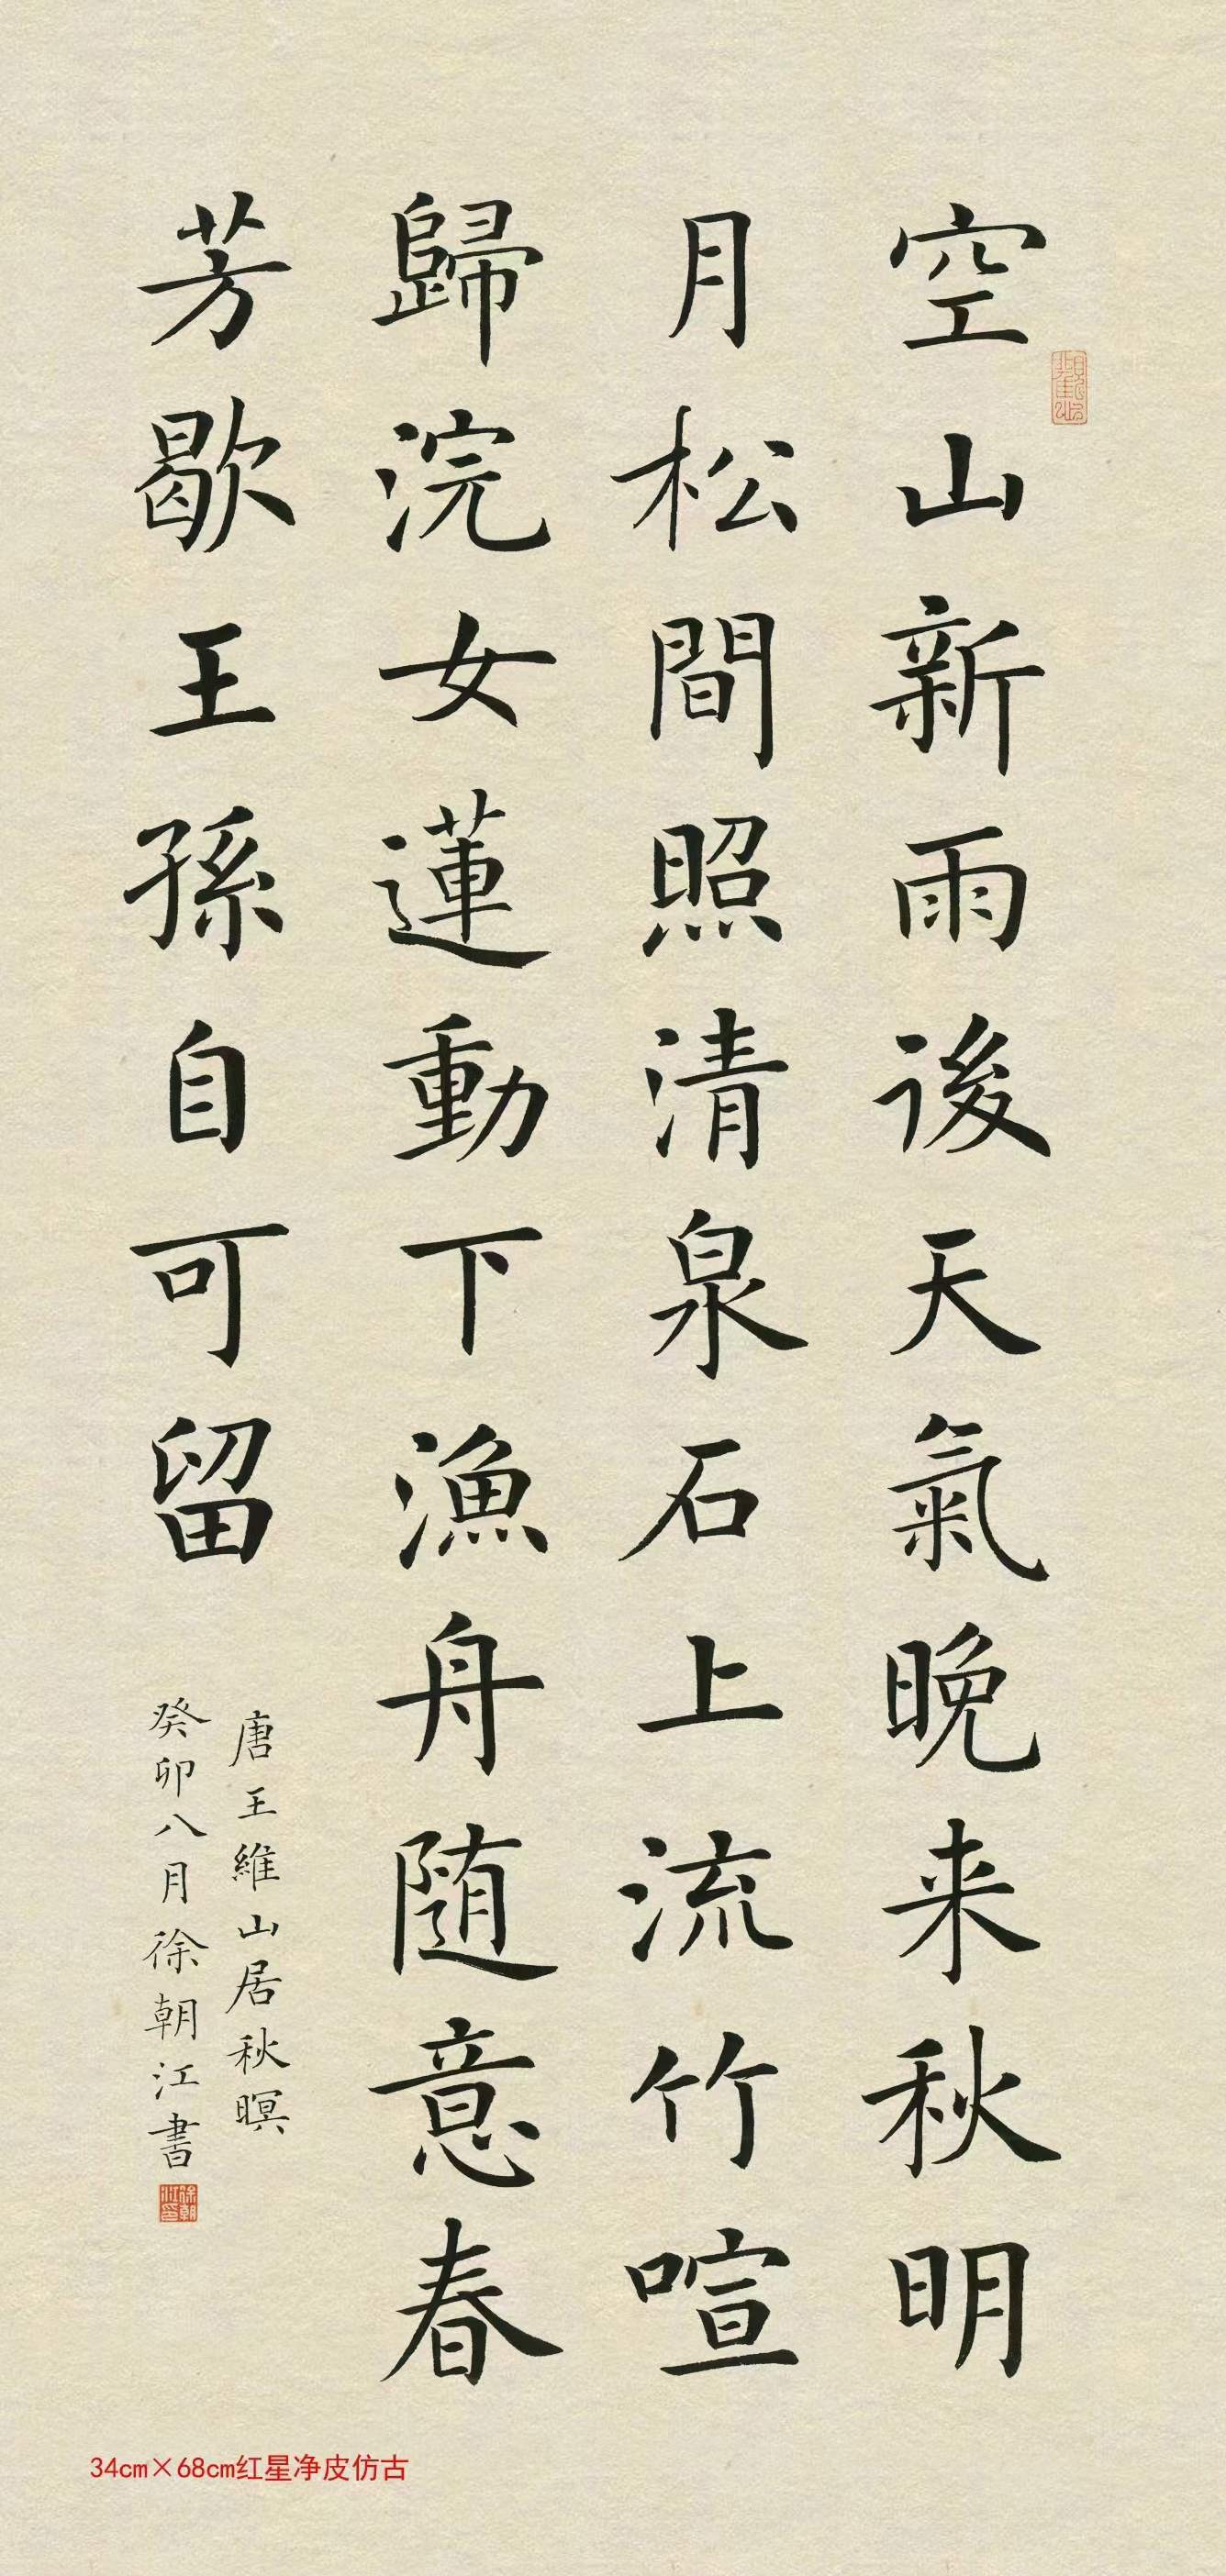 空山新雨後天氣晚来秋明
月松間照清泉石上流竹喧
歸浣女蓮動下漁舟随意春
芳歇王孫自可留
唐王維山居秋暝
癸卯八月徐朝江書
徐朝江印
34cm×68cm红星净皮仿古